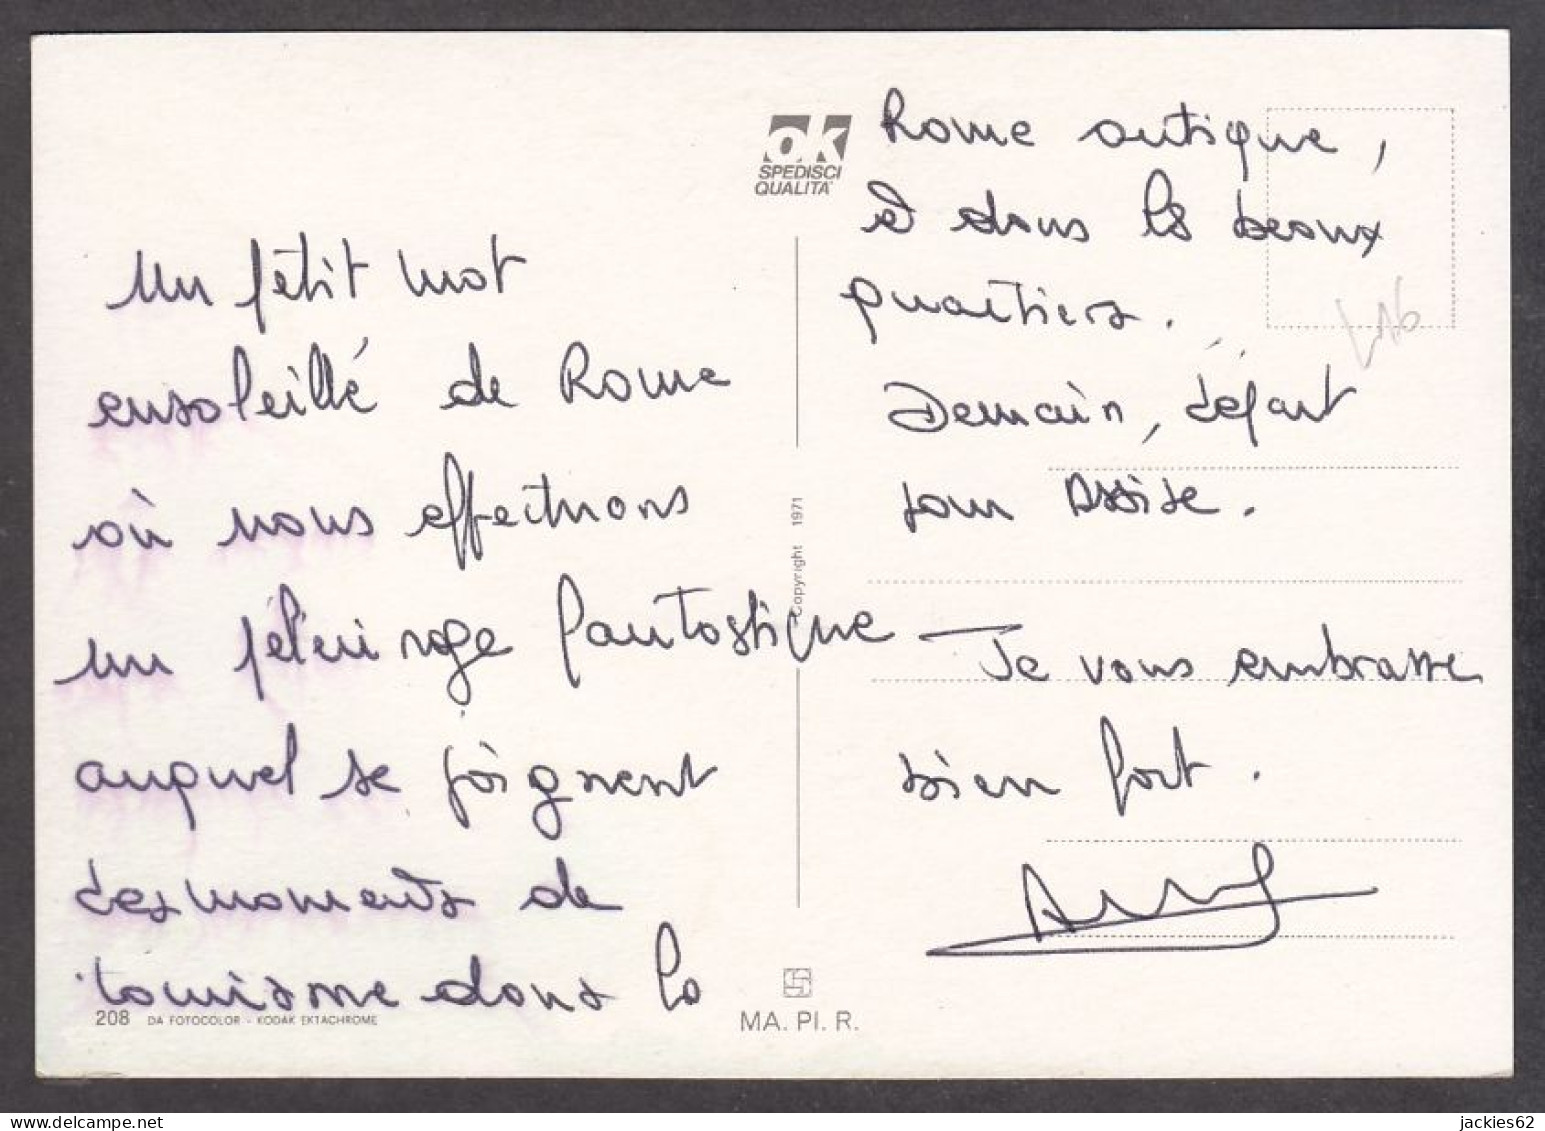 Un petit mot
ensoleillé de Rome
où nous effectuons
un pélerinage fantastique
auquel se joignent
des moments de
tourisme dans la
208 DA FOTOCOLOR - KODAK EKTACHROME
ok
SPEDISCI
QUALITA'
Copyright 1971
MA. PI. R.
Rome antique,
et dans les beaux
quartiers.
Demain, départ
pour Assise.
Je vous embrasse
bien fort.
jackies62